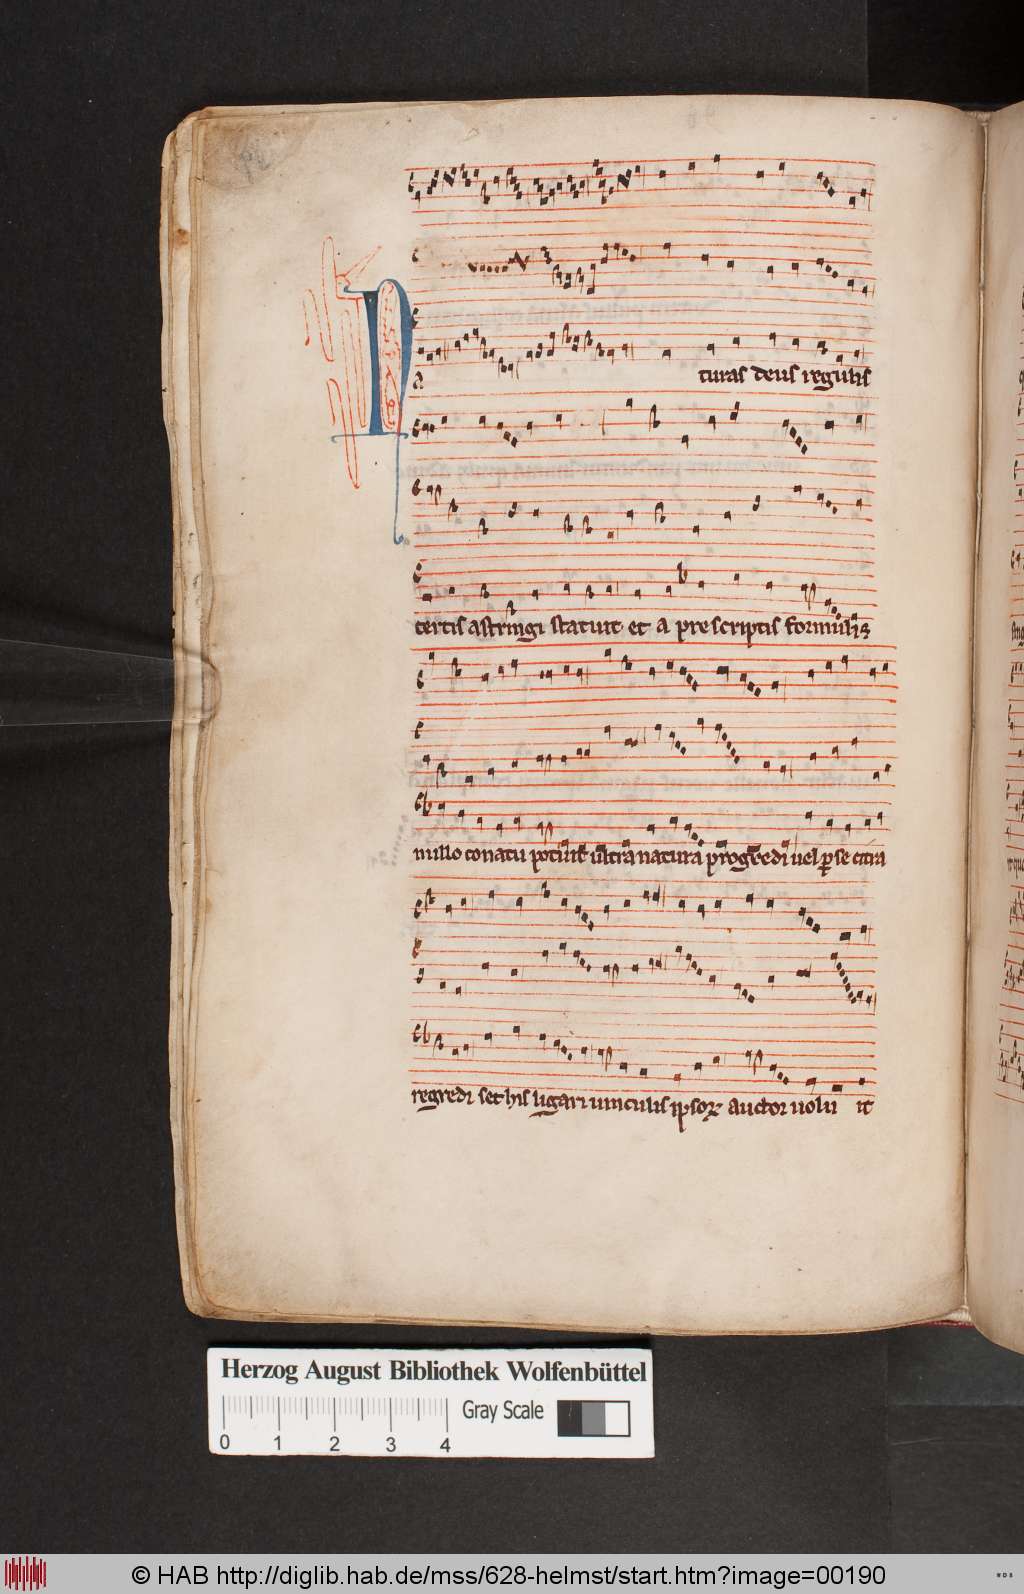 Na turas deus regulis
certis astringi statuit et a prescriptis formulis
nullo conatu potuit ultra natura progredi uel pse citra
regredi set his ligari uinculis ipsoꝝ auctor uolu it
Herzog August Bibliothek Wolfenbüttel
Gray Scale
0 1 2 3 4
© HAB http://diglib.hab.de/mss/628-helmst/start.htm?image=00190